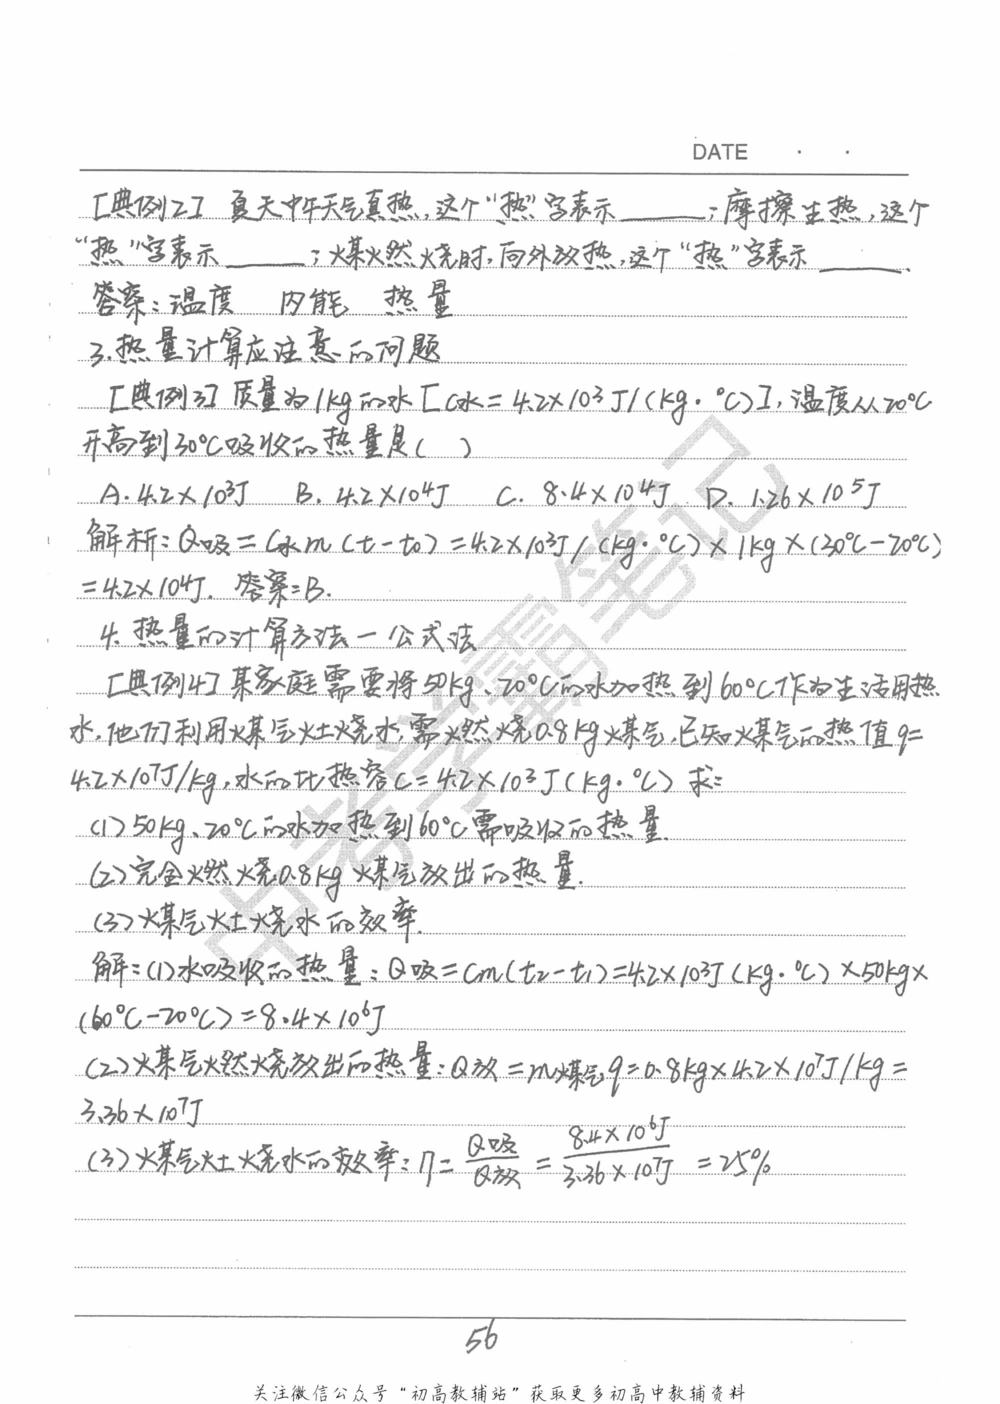 DATE · ·
[典例2] 夏天中午天气真热,这个“热”字表示______;摩擦生热,这个
“热”字表示______;煤燃烧时,向外放热,这个“热”字表示______.
答案:温度 内能 热量
3.热量计算应注意的问题
[典例3]质量为1kg的水[C水=4.2×10³J/(kg·℃)],温度从20℃
升高到30℃吸收的热量是( )
A.4.2×10³J B.4.2×10⁴J C.8.4×10⁴J D.1.26×10⁵J
解析:Q吸=C水m(t-t₀)=4.2×10³J/(kg·℃)×1kg×(30℃-20℃)
=4.2×10⁴J. 答案:B.
4.热量的计算方法—公式法
[典例4]某家庭需要将50kg、20℃的水加热到60℃作为生活用热
水,他们利用煤气灶烧水,需燃烧0.8kg煤气.已知煤气的热值q=
4.2×10⁷J/kg,水的比热容C=4.2×10³J(kg·℃) 求:
(1)50kg、20℃的水加热到60℃需吸收的热量.
(2)完全燃烧0.8kg煤气放出的热量.
(3)煤气灶烧水的效率.
解:(1)水吸收的热量:Q吸=cm(t₂-t₁)=4.2×10³J(kg·℃)×50kg×
(60℃-20℃)=8.4×10⁶J
(2)煤气燃烧放出的热量:Q放=m煤气q=0.8kg×4.2×10⁷J/kg=
3.36×10⁷J
(3)煤气灶烧水的效率:η=Q吸/Q放=8.4×10⁶J/3.36×10⁷J=25%
56
中考学霸笔记
关注微信公众号“初高教辅站”获取更多初高中教辅资料